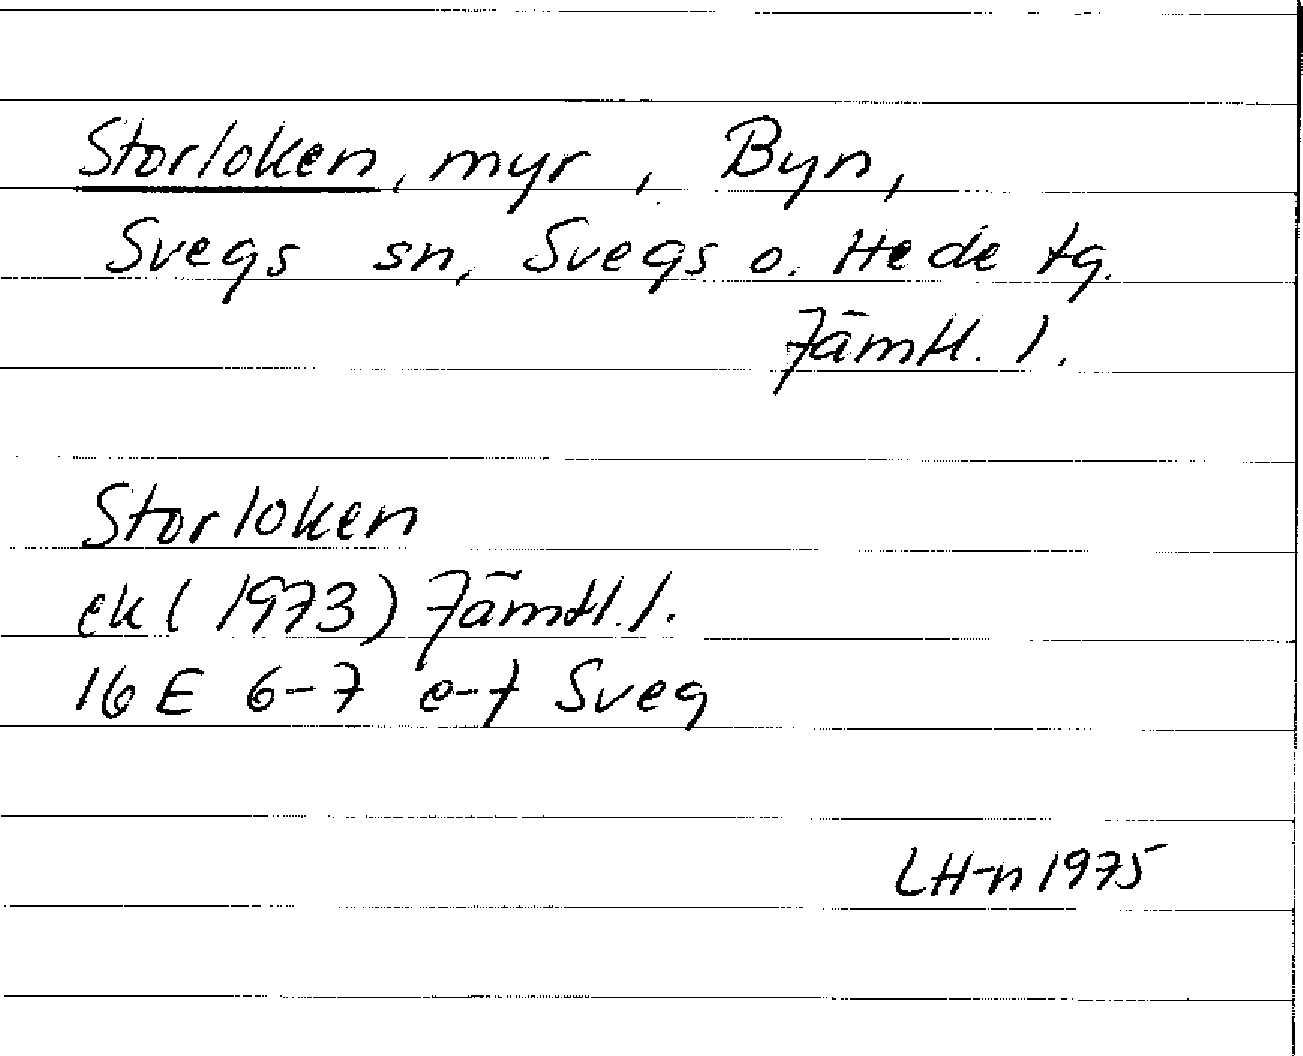 Storloken, myr, Byn,
Svegs sn, Svegs o. Hede tg.
Jämtl. l.
Storloken
ek (1973) Jämtl. l.
16 E 6-7 e-f Sveg
LH-n 1975